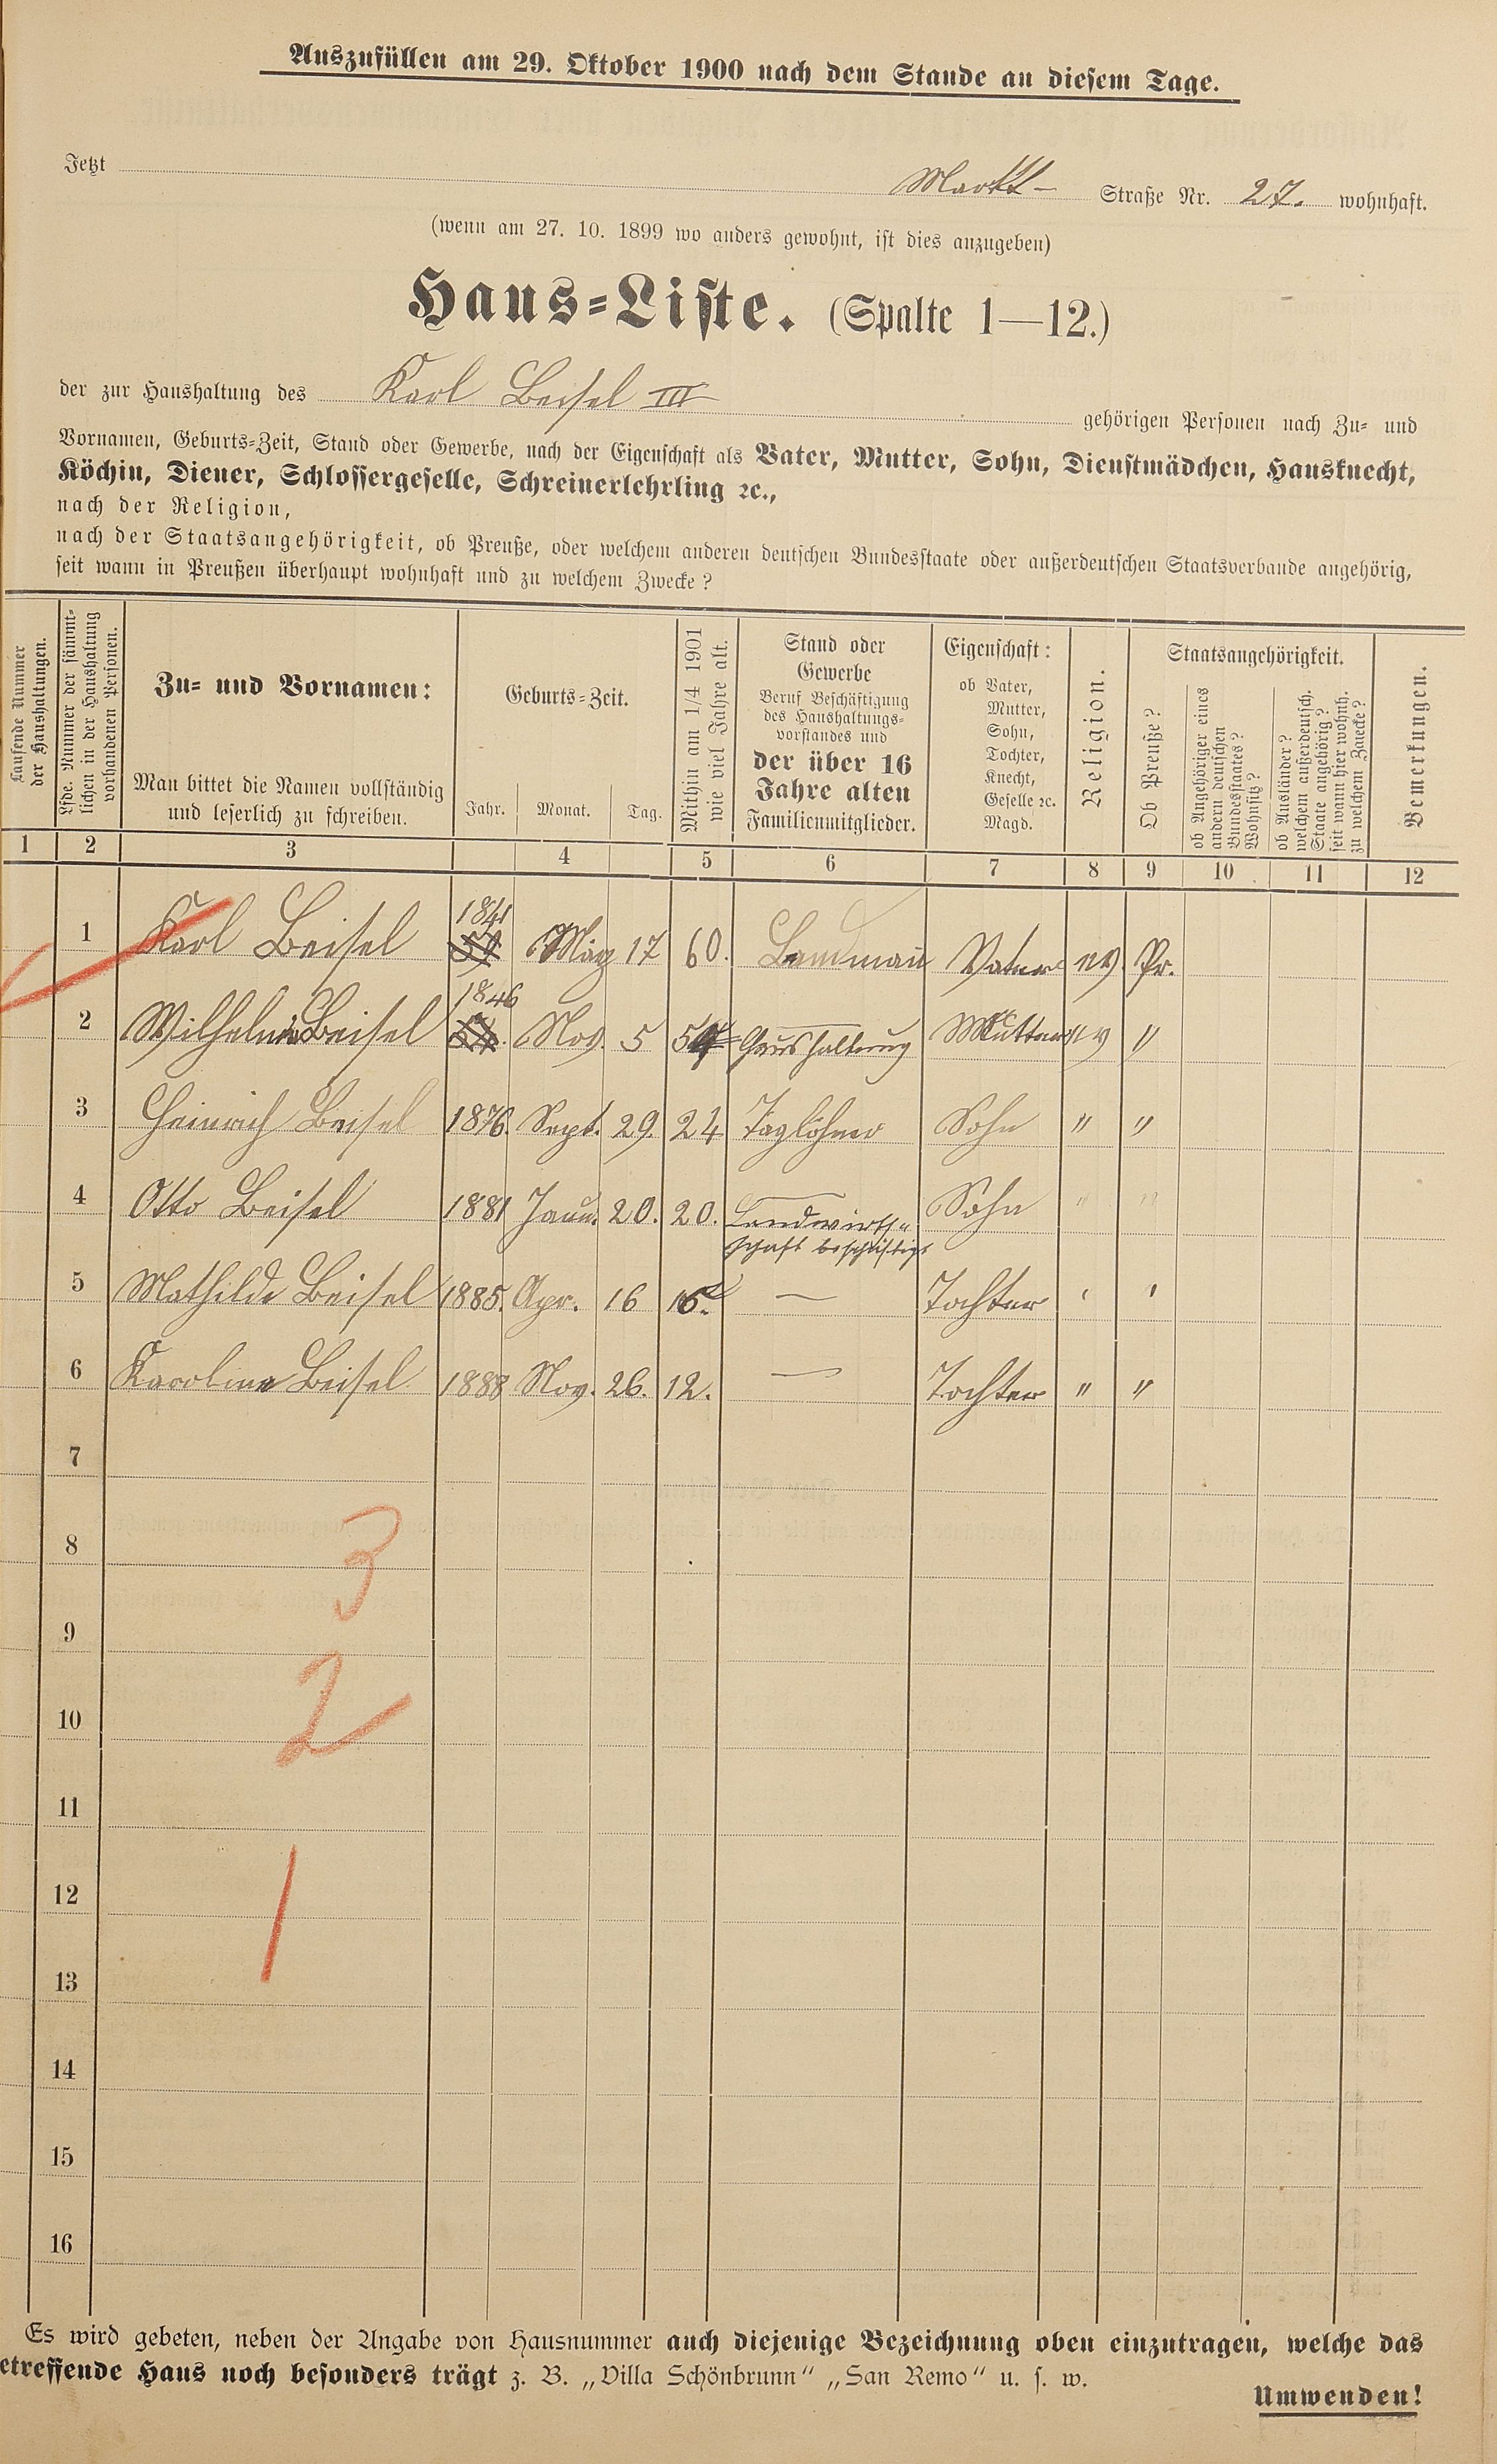 Auszufüllen am 29. Oktober 1900 nach dem Stande an diesem Tage.
Jetzt Markt- Straße Nr. 27. wohnhaft.
(wenn am 27. 10. 1899 wo anders gewohnt, ist dies anzugeben)
Haus-Liste. (Spalte 1—12.)
der zur Haushaltung des Karl Beisel III gehörigen Personen nach Zu- und
Vornamen, Geburts-Zeit, Stand oder Gewerbe, nach der Eigenschaft als Vater, Mutter, Sohn, Dienstmädchen, Hausknecht,
Köchin, Diener, Schlossergeselle, Schreinerlehrling ꝛc.,
nach der Religion,
nach der Staatsangehörigkeit, ob Preuße, oder welchem anderen deutschen Bundesstaate oder außerdeutschen Staatsverbande angehörig,
seit wann in Preußen überhaupt wohnhaft und zu welchem Zwecke?
Laufende Nummer
der Haushaltungen.
Lfde. Nummer der sämmt-
lichen in der Haushaltung
vorhandenen Personen.
Zu- und Vornamen:
Man bittet die Namen vollständig
und leserlich zu schreiben.
Geburts-Zeit.
Jahr. Monat. Tag.
Mithin am 1/4 1901
wie viel Jahre alt.
Stand oder
Gewerbe
Beruf Beschäftigung
des Haushaltungs-
vorstandes und
der über 16
Jahre alten
Familienmitglieder.
Eigenschaft:
ob Vater,
Mutter,
Sohn,
Tochter,
Knecht,
Geselle ꝛc.
Magd.
Religion.
Staatsangehörigkeit.
Ob Preuße?
ob Angehöriger eines
andern deutschen
Bundesstaates?
Wohnsitz?
ob Ausländer?
welchem außerdeutsch.
Staate angehörig?
seit wann hier wohnh.
zu welchem Zwecke?
Bemerkungen.
1 2 3 4 5 6 7 8 9 10 11 12
1841
1 Karl Beisel März 17 60. Landmann Vater ev. Pr.
1846
2 Wilhelmine Beisel Nov. 5 54 Haushaltung Mutter ev "
3 Heinrich Beisel 1876. Sept. 29. 24 Taglöhner Sohn " "
4 Otto Beisel 1881 Janu. 20. 20. Landwirth-
schaft beschäftigt Sohn " "
5 Mathilde Beisel 1885. Apr. 16 15. — Tochter " "
6 Karoline Beisel 1888 Nov. 26. 12. — Tochter " "
7
8
3
9
10
2
11
12
1
13
14
15
16
Es wird gebeten, neben der Angabe von Hausnummer auch diejenige Bezeichnung oben einzutragen, welche das
etreffende Haus noch besonders trägt z. B. „Villa Schönbrunn“ „San Remo“ u. s. w.
Umwenden!